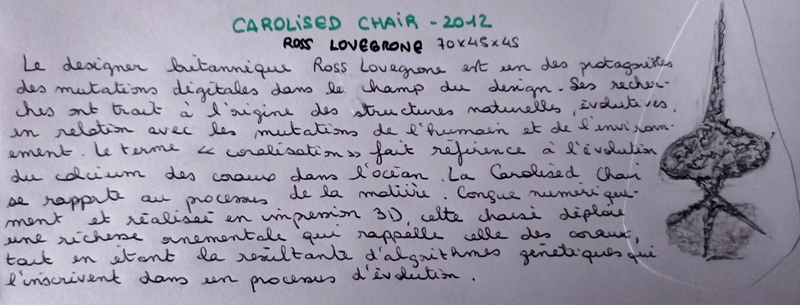 CAROLISED CHAIR - 2012
ROSS LOVEGRONE 70x45x45
Le designer britannique Ross Lovegrone est un des protagonistes
des mutations digitales dans le champ du design. Ses recher-
ches ont trait à l'origine des structures naturelles, évolutives,
en relation avec les mutations de l'humain et de l'environ-
ement. Le terme « coralisation » fait référence à l'évolution
du calcium des coraux dans l'océan. La Carolised Chair
se rapporte au processus de la matière. Conçue numérique-
ment et réalisée en impression 3D, cette chaise déploie
une richesse ornementale qui rappelle celle des coraux,
tout en étant la résultante d'algorithmes génétiques qui
l'inscrivent dans un processus d'évolution.